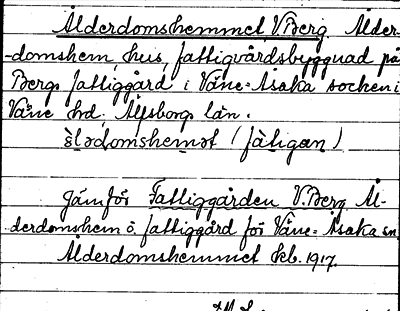 Ålderdomshemmet V.Berg Ålder-
-domshem, hus, fattigvårdsbyggnad på
Bergs fattiggård i Väne-Åsaka socken i
Väne hd, Älfsborgs län.
(fàtigan)
Jämför Fattiggården V.Berg Ål-
derdomshem o. fattiggård för Väne-Åsaka sn,
Ålderdomshemmet Ekb. 1917.